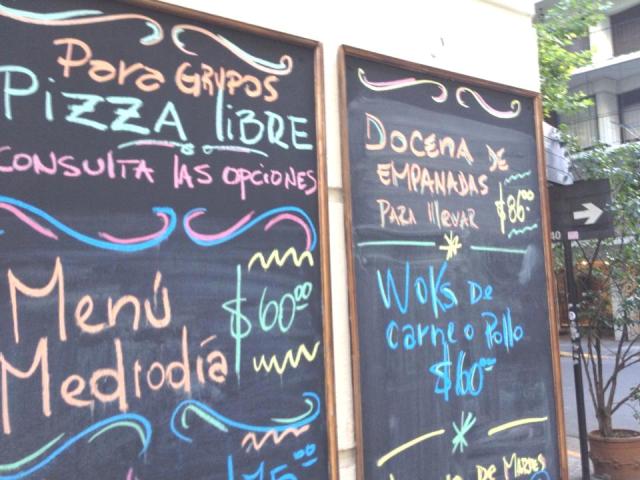 Para GRUPOS
PiZZA liBRE
CONSULTA lAS OPCiONES
Menú
Mediodía
$60⁰⁰
75⁰⁰
DOCENA DE
EMPANADAS
PARA llEVAR
$86⁰⁰
Woks De
carne o Pollo
$60⁰⁰
De MARTES